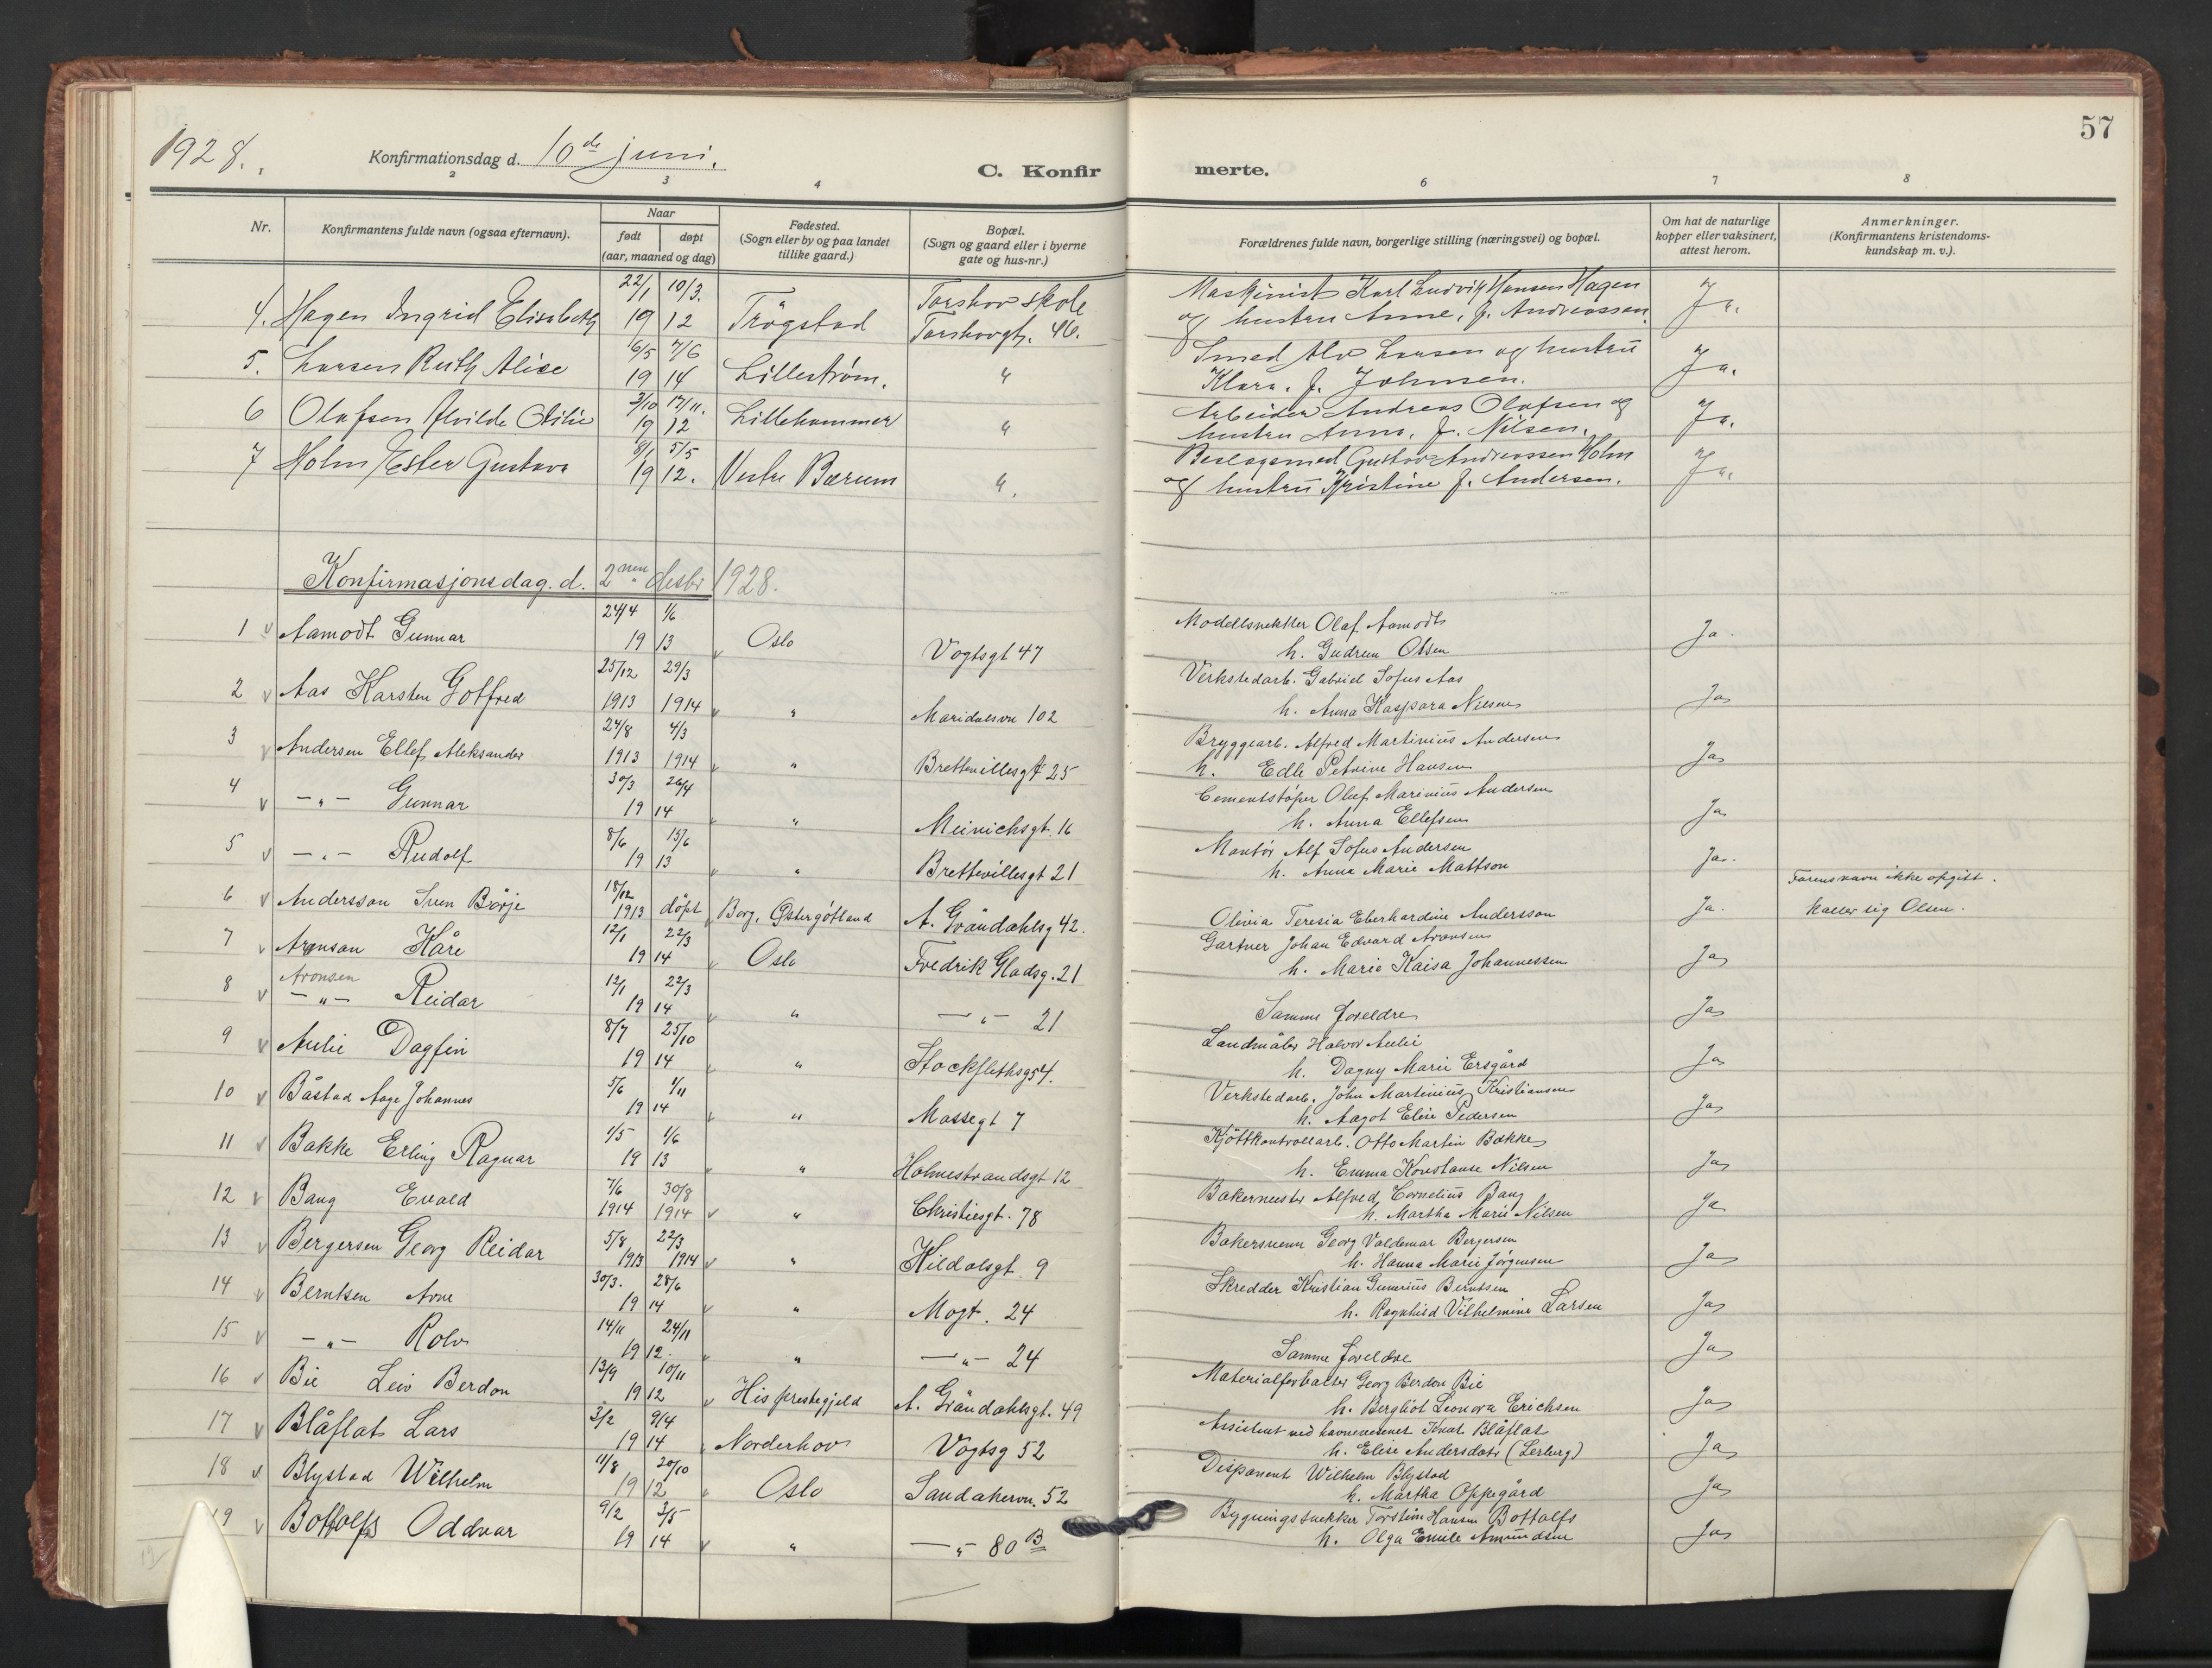 57
1928.
Konfirmationsdag d. 10de juni.
C. Konfirmerte.
2 3 4 6 7 8
Nr.
Konfirmantens fulde navn (ogsaa efternavn).
Naar
født døpt
(aar, maaned og dag)
Fødested.
(Sogn eller by og paa landet
tillike gaard.)
Bopæl.
(Sogn og gaard eller i byerne
gate og hus-nr.)
Forældrenes fulde navn, borgerlige stilling (næringsvei) og bopæl.
Om hat de naturlige
kopper eller vaksinert,
attest herom.
Anmerkninger.
(Konfirmantens kristendoms-
kundskap m. v.).
4. Hagen Ingrid Elisabeth 22/1 10/3. 19 12 Trögstad Torshov skole Torshovgt. 46. Maskinist Karl Ludvig Hansen Hagen Ja.
og hustru Anne, f. Andreassen
5. Larsen Ruth Alise 6/5 7/6 19 14 Lilleström. " Smed Alv Larsen og hustru Ja.
Klara. f. Johnsen.
6 Olafsen Alvilde Otilie 3/10 17/11. 19 12 Lillehammer " Arbeider Andreas Olafsen og Ja.
hustru Anna, f. Nilsen.
7 Holm Ester Gustava 8/1 5/5 19 12. Vestre Bærum " Beslagsmed Gustav Andreassen Holm Ja.
og hustru Kristine f. Andersen.
Konfirmasjonsdag. d. 2nen desbr 1928.
1 v Aamodt Gunnar 24/4 1/6 19 13 Oslo Vogtsgt 47 Modellsnekker Olaf Aamodt Ja.
h. Gudrun Olsen
2 v Aas Karsten Gotfred 25/12 29/3 1913 1914 " Maridalsvn 102 Verkstedarb. Gabriel Sofus Aas Ja
h. Anna Kaspara Nilsen
3 v Andersen Ellef Aleksander 24/8 4/3 1913 1914 " Brettevillesgt 25 Bryggearb. Alfred Martinius Andersen Ja
h. Edle Petrine Hansen
4 v —"— Gunnar 30/3 26/4 19 14 " Meinichsgt. 16 Cementstöper Oluf Marinius Andersen Ja
h. Anna Ellefsen
5 v —"— Rudolf 8/6 15/6 19 13 " Brettevillesgt 21 Montör Alf Sofus Andersen Ja.
h. Anna Marie Mattson
6 v Andersson Sven Börje 18/12 1913 döpt Borg, Östergötland A. Gröndahlsg 42. Olivia Teresia Eberhardine Andersson Ja. Farens navn ikke opgitt.
kaller sig Olsen.
7 v Aronson Kåre 12/1 22/3 19 14 Oslo Fredrik Gladsg. 21 Gartner Johan Edvard Aronsen Ja
h. Marie Kaisa Johannessen
Aronsen
8 v —"— Reidar 12/1 22/3 19 14 " —"— 21 Samme foreldre Ja
9 v Aulie Dagfin 8/7 25/10 19 14 " Stockflethsg 54. Landmåler Halvor Aulie Ja
h. Dagny Marie Ersgård
10 v Båstad Aage Johannes 5/6 1/11 19 14 " Mossegt 7 Verkstedarb. John Martinius Kristiansen Ja
h. Aagot Elise Pedersen
11 v Bakke Erling Ragnar 1/5 1/6 19 13 " Holmestrandsgt 12 Kjöttkontrollarb. Otto Martin Bakke Ja
h. Emma Konstanse Nilsen
12 v Bang Evald 7/6 30/8 1914 1914 " Christiesgt. 78 Bakermester Alfred Cornelius Bang Ja
h. Martha Marie Nilsen
13 v Bergersen Georg Reidar 5/8 22/3 1913 1914 " Kildalsgt 9 Bakersvenn Georg Valdemar Bergersen Ja
h. Hanna Marie Jörgensen
14 v Berntsen Arne 30/3. 28/6 19 14 " Mogt. 24 Skredder Kristian Gunerius Berntsen Ja
h. Ragnhild Vilhelmine Larsen
15 v —"— Rolv 14/11 24/11 19 12. " —"— 24 Samme foreldre Ja
16 v Bie Leiv Berdon 13/9 10/11 19 12 His prestegjeld A. Gröndahlsgt. 49 Materialforvalter Georg Berdon Bie Ja
h. Bergliot Leonora Erichsen
17 v Blåflat Lars 3/2 9/4 19 14 Norderhov Vogtsg 52 Assistent ved havnevesenet Knut Blåflat Ja
h. Elise Andersdatr (Lerberg)
18 v Blystad Wilhelm 11/8 20/10 19 12 Oslo Sandakervn. 52 Disponent Wilhelm Blystad Ja
h. Martha Oppegård
19 v Bottolfs Oddvar 9/2 3/5 19 14 " —"— 80 B Bygningssnekker Torstein Hansen Bottolfs Ja
h. Olga Emile Amundsen